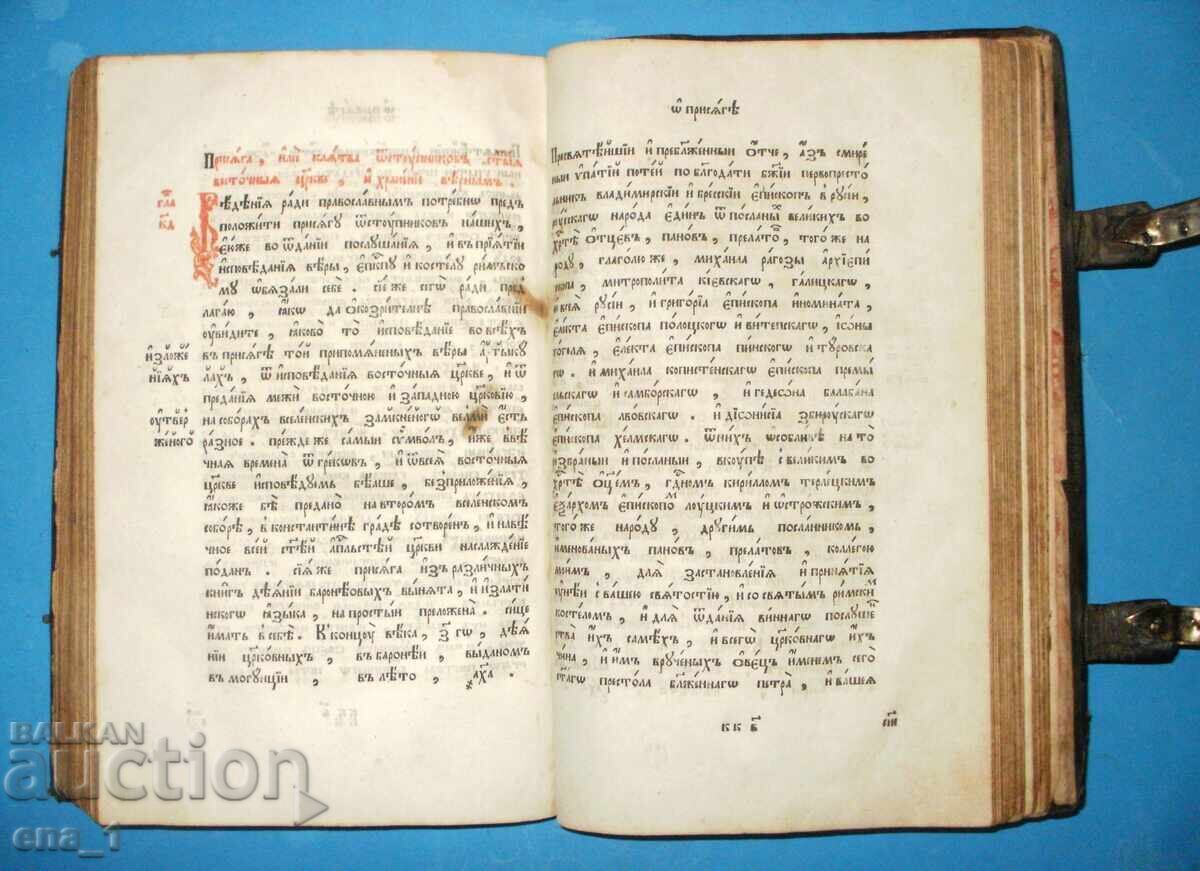 Присѧга , и҆лѝ клѧтва ѿстоупникѡвъ . ст҃ыѧ
восточныѧ цр҃кве , и҆ хр҃тїѡм вѣрнымъ .
гла
к҃д
Вѣденїѧ ради православнымъ потребнѡ предъ
положити присѧгу ѿстоупникѡвъ нашихъ ,
е҆юже во ѿданїи послушанїѧ , и҆ въ прїѧтїи
и҆сповѣданїѧ вѣры , е҆пс҃пу и҆ костелу римъско
му ѡ҆бѧзали себе . сїе же сегѡ̀ ради пред
лагаю , ꙗ҆кѡ да ѻ҆козрителнѣ православнїи
оу҆видите , ꙗ҆ково то и҆сповѣданїе во всѣхъ
и҆зложе
нїѧхъ
въ присѧгѣ той припомѧненыхъ вѣры а҆ртыку
лахъ , ѿ и҆сповѣданїѧ восточныѧ цр҃кве , и҆ ѿ
преданїѧ межи восточною и҆ западною цр҃ковїю ,
оу҆твер
женого
на соборахъ вселенскихъ замкненогѡ велми є҆сть
разное . прежде же самый сѷмволъ , и҆же ввѣ
чная времена ѿ грековъ , и҆ ѿ всеѧ восточныѧ
цр҃кве и҆сповѣдуемъ бѣаше , без приложенїѧ ,
ꙗ҆коже бѣ предано на второмъ вселенскомъ
соборѣ , в константинѣ градѣ сотворен , и҆ навѣ
чное всей ст҃ѣй а҆пл҃ьстѣй цр҃кви наслажденїе
поданъ . сїѧ же присѧга и҆зъ различныхъ
книгъ дѣѧнїй баронѣовыхъ вынѧта , и҆ и҆з лати
нскогѡ ꙗ҆зыка , на простый преложена . сице
и҆мать в себѣ . К концоу вѣка , з҃гѡ , дѣѧ
нїй цр҃ковныхъ , въ баронѣи , выданомъ
въ могунцїи , въ лѣто , ҂ах҃а .
ѡ҆ присѧгѣ
Пресвѧтѣйшїй и҆ преблж҃енный ѻ҆тче , а҆зъ смире
ный и҆патїй потѣй по благодати бж҃їей первопресто
лникъ владимирскїй и҆ брескїй є҆пископъ в руси ,
руускагѡ народа є҆динъ ѿ посланыⷯ великихъ во
хр҃тѣ ѻ҆тцевъ , пановъ , прелатѡⷡ , того же на
роду , глаголю же , михаила рагозы а҆рхїепи
скопа , митрополита кїевскагѡ , галицкагѡ ,
и҆ всеѧ русїи , и҆ григорїѧ є҆пископа и҆номината ,
є҆лекта є҆пископа полоцкогѡ и҆ витепскагѡ , і҆ѡны
гоголѧ , є҆лекта є҆пископа пинскогѡ и҆ туровска
гѡ . и҆ михаила копистенскагѡ є҆пископа премы
шльскагѡ и҆ самборскагѡ , и҆ гедеѡна балабана
є҆пископа лвовскагѡ . и҆ дїѡнисїа збируйскагѡ
є҆пископа хелмскагѡ . ѿ нихъ ѡ҆собливѣ на то
и҆збраный и҆ посланый , вкоупѣ с великимъ во
хр҃тѣ ѻ҆ц҃емъ , гдⷭ҇номъ кирилломъ терлецкимъ
є҆ѯархомъ є҆пископоⷨ лоуцкимъ и҆ ѡ҆строжскимъ ,
того же народу , другимъ посланникомъ ,
и҆менованыхъ пановъ , прелатовъ , коллегою
моимъ , длѧ застановленїѧ и҆ принѧтїѧ
оу҆нѣи с вашею свѧтостїю , и҆ со свѧтымъ римскиⷨ
костеломъ , и҆ длѧ ѿданїѧ виннагѡ послуше
ства и҆хъ самѣхъ , и҆ всегѡ цр҃ковнагѡ и҆хъ
чина , и҆ и҆мъ врученыхъ ѻ҆вецъ и҆менемъ сегѡ
ст҃агѡ престола бл҃женнагѡ петра , и҆ вашеѧ
к к в҃
сп҃и
BALKAN
auction
ena_1